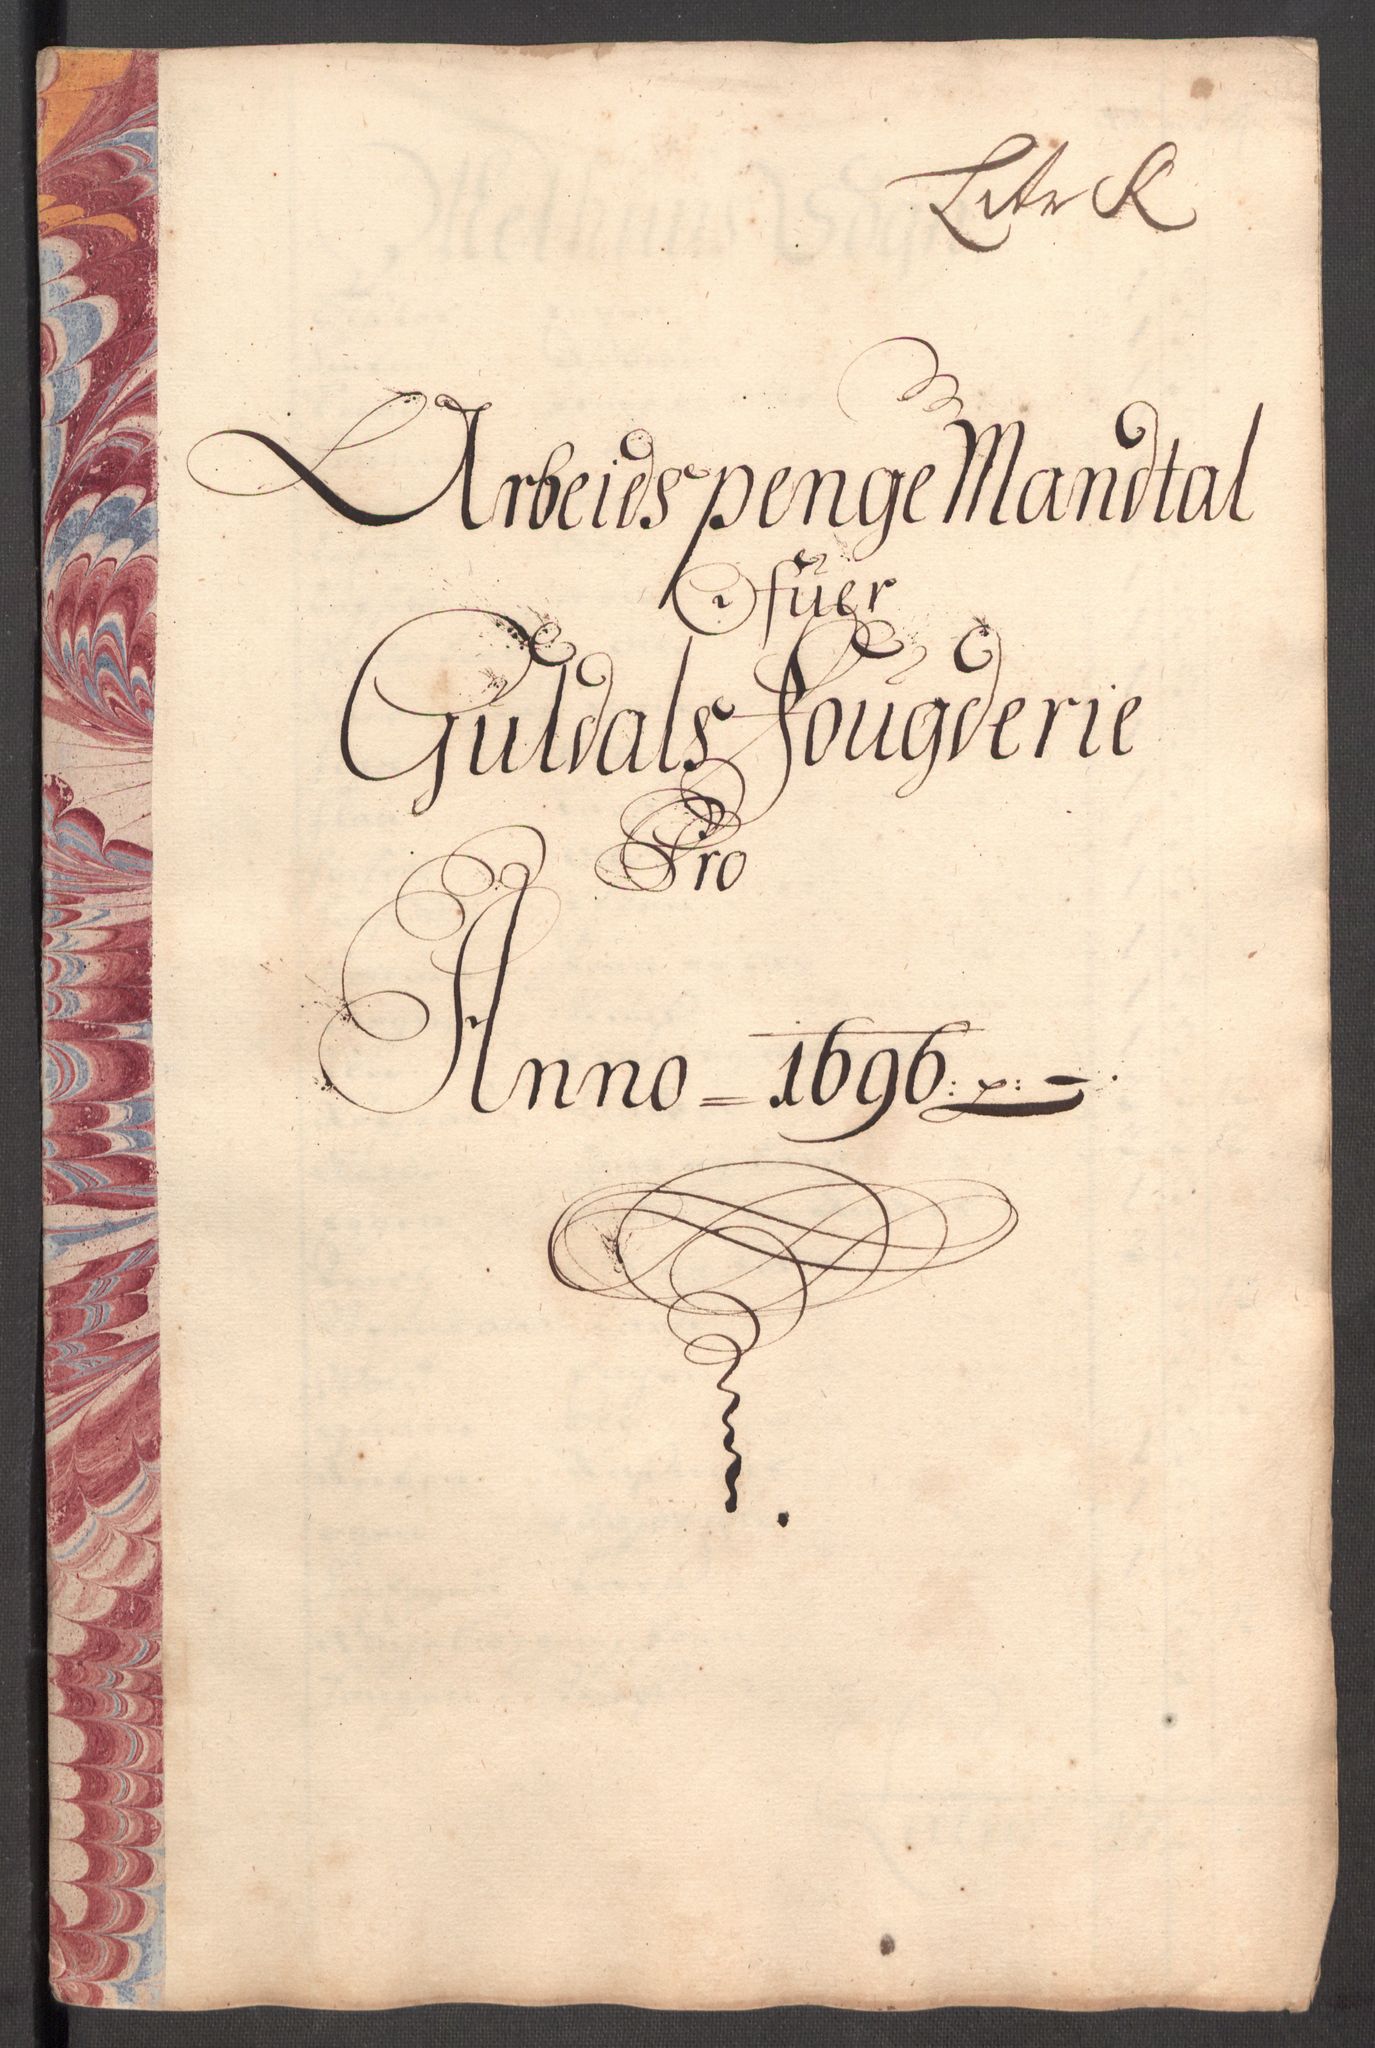 Litr K
Arbeids penge Mandtal
ofuer
Guldals Fougderie
Pro
Anno = 1696